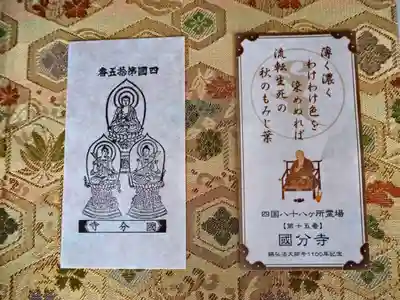 四國第拾五番
寺分國
薄く濃く
わけわけ色を
染めぬれば
流転生死の
秋のもみじ葉
四国八十八ヶ所霊場
【第十五番】
國分寺
賜弘法大師号1100年記念